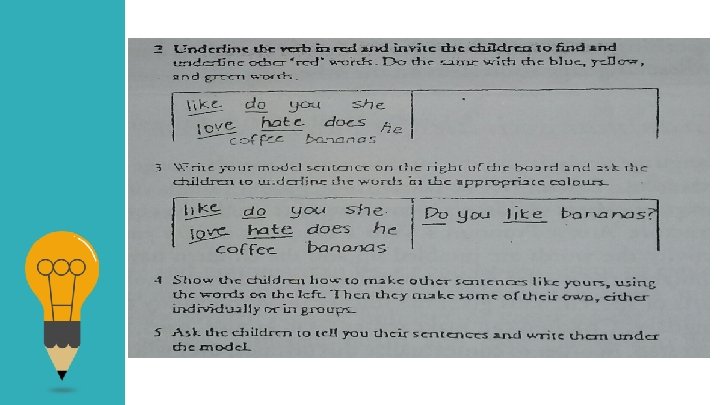 2 Underline the verb in red and invite the children to find and
underline other 'red' words. Do the same with the blue, yellow,
and green words.
like do you she
love hate does he
coffee bananas
3 Write your model sentence on the right of the board and ask the
children to underline the words in the appropriate colours.
like do you she Do you like bananas?
love hate does he
coffee bananas
4 Show the children how to make other sentences like yours, using
the words on the left. Then they make some of their own, either
individually or in groups.
5 Ask the children to tell you their sentences and write them under
the model.